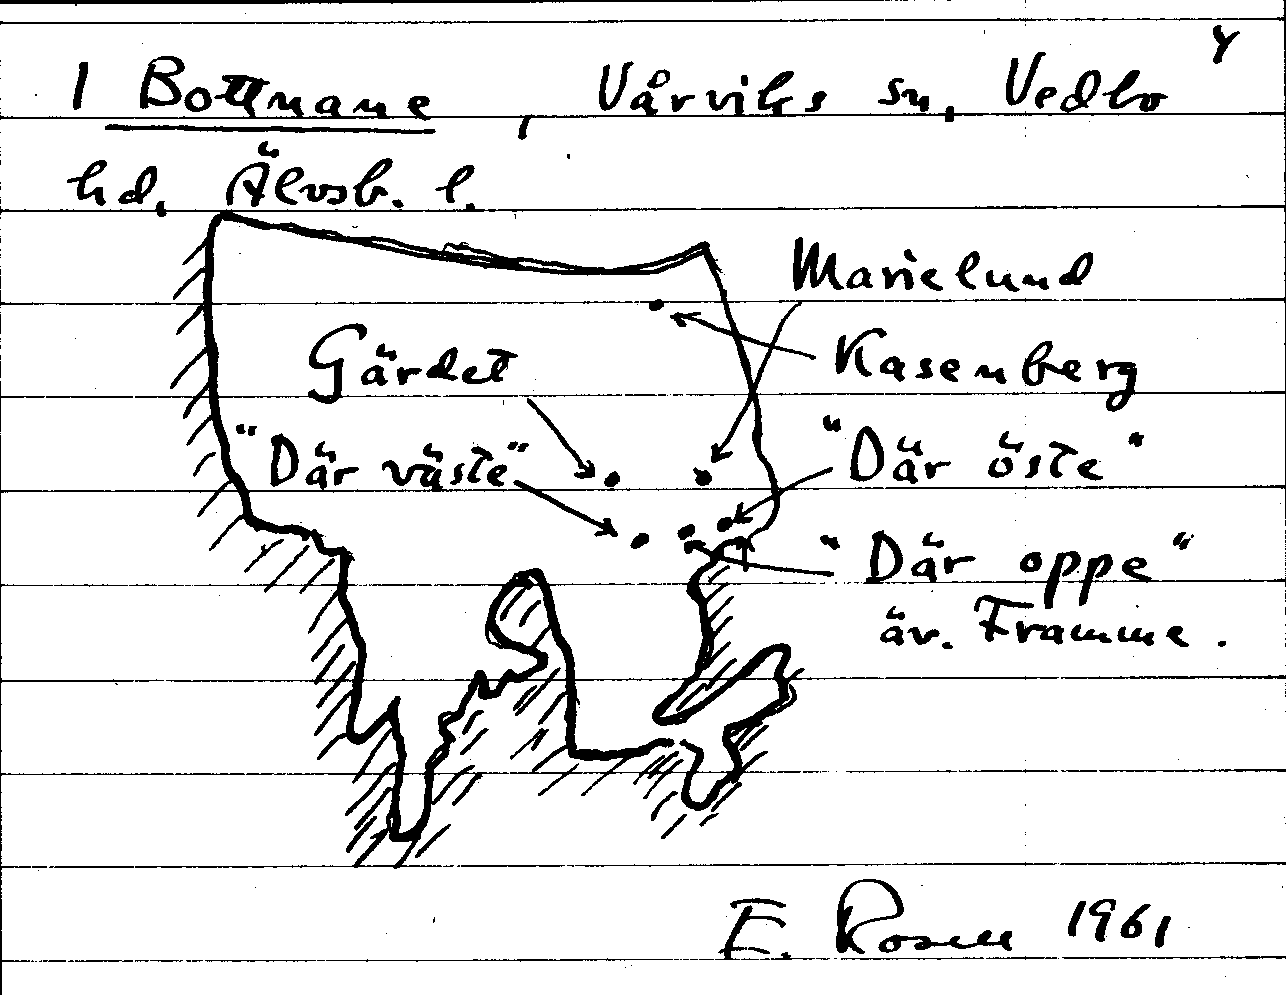 Y
1 Bottnane, Vårviks sn, Vedbo
hd. Älvsb. l.
Marielund
Gärdet
Kasenberg
"Där väste"
"Där öste"
"Där oppe"
äv. Framme.
E. Rosell 1961